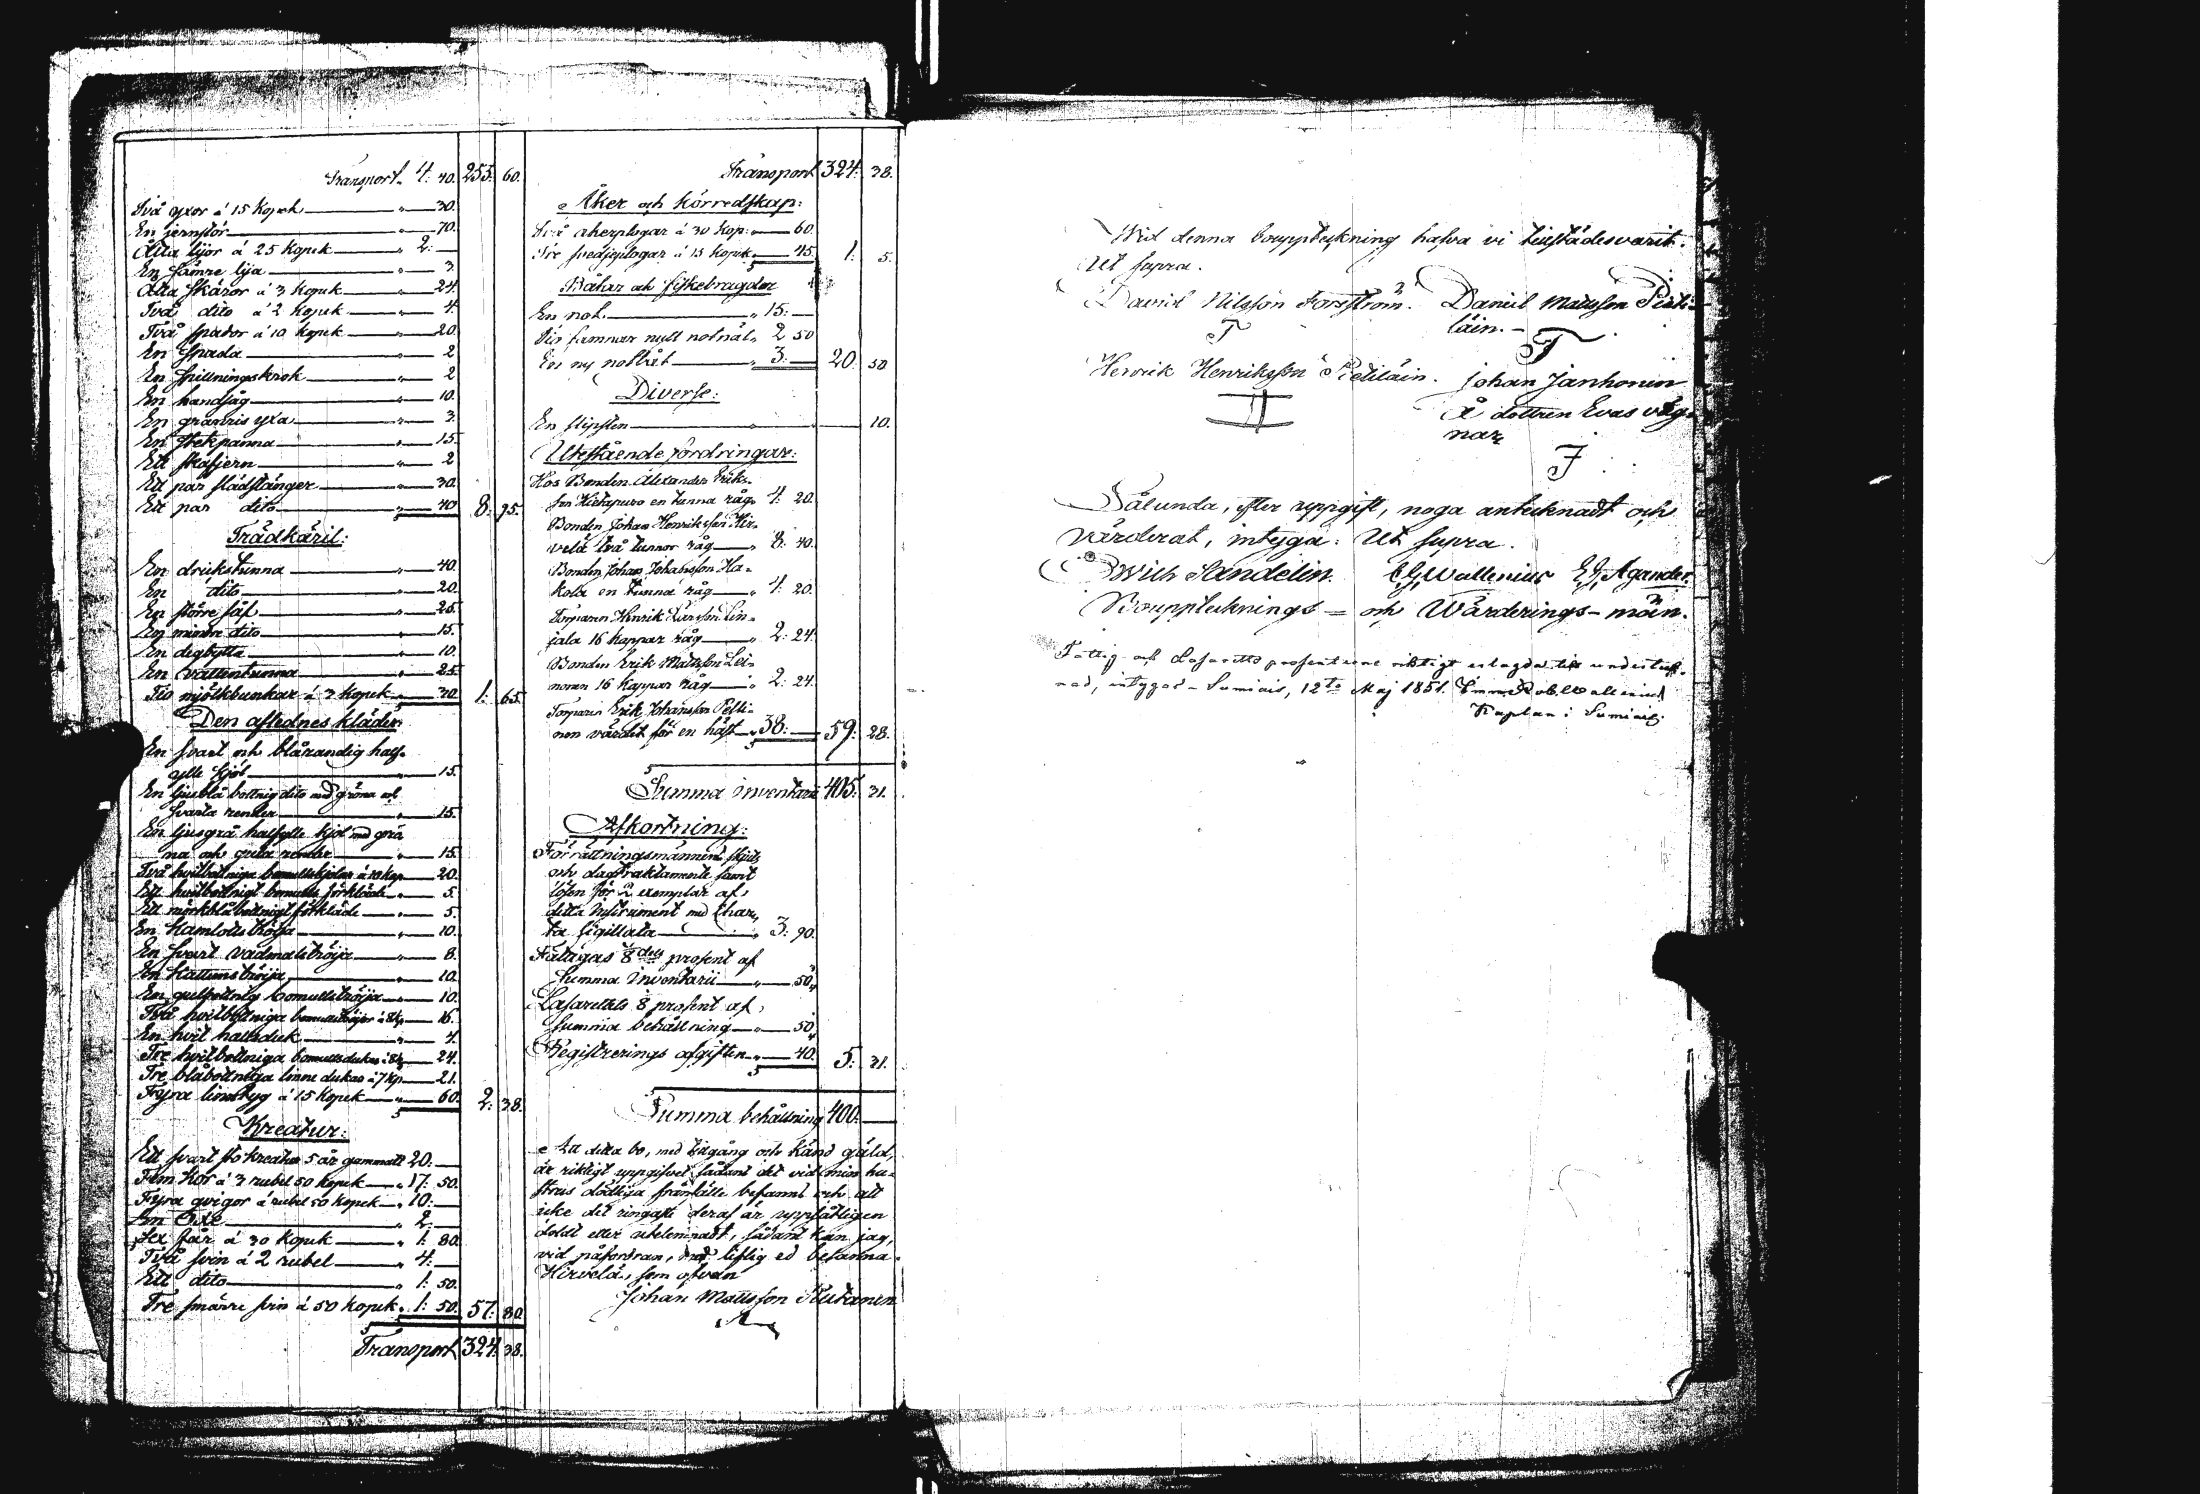 Transport. 4: 40. 255: 60.
Två yxor á 15 kopek " 30.
En jernstör " 70.
Åtta lijor á 25 kopek " 2:
En sämre lija " 3.
Åtta skäror á 3 kopek " 24
Två dito á 2 kopek " 4.
Två spador á 10 kopek " 20
En spada " 2
En spillningskrok " 2
En handsåg " 10.
En granris yxa " 3.
En stekpanna " 15.
Ett skafjern " 2
Ett par slädstänger " 30.
Ett par dito " 40 8: 95.
Trädkäril:
En drickstunna " 40.
En dito " 20.
En större så " 25.
En mindre dito " 15.
En degbytta " 10.
En vattentunna " 25.
Tio mjölkbunkar á 3 kopek " 30 1: 65.
Den aflednes kläder
En svart och blårandig half-
ylle kjol " 15.
En ljusblå bottnig dito med gröna och
svarta render " 15.
En ljusgrå halfylle kjol med grö
na och gula render " 15.
Två hvitbottniga bomullskjolar á 10 kop 20.
Ett hvitbottnigt bomulls förkläde " 5.
Ett mörkblåbottnigt förkläde " 5.
En kamlottströja " 10.
En svart vadmalströija " 8.
En kattunströija " 10.
En gulbottnig bomullströija " 10.
Två hvitbottniga bomullströijor á 8 kp 16.
En hvit halsduk " 4.
Tre hvitbottniga bomullsdukar á 8 k 24.
Tre blåbottniga linne dukar á 7 kp 21.
Fyra linntyg á 15 kopek " 60. 2: 38.
Kreatur:
Ett svart sto kreatur 5 år gammalt 20:
Fem kor á 3 rubel 50 kopek " 17: 50.
Fyra qvigor á 2 rubel 50 kopek " 10:
En Oxe " 2:
Sex får á 30 kopek " 1: 80.
Två svin á 2 rubel " 4:
Ett dito " 1: 50.
Tre smärre svin á 50 kopek " 1: 50. 57: 80
Transport 324: 38.
Transport 324: 38.
Åker och körredskap:
Två åkerplogar á 30 kop: " 60.
Tre svedjeplogar á 15 kopek " 45. 1: 5.
Båtar och fiskebragder
En not " 15:
Tio famnar nytt notnät " 2 50
En ny notbåt " 3: 20: 50
Diverse:
En slipsten " 10.
Utestående fordringar:
Hos Bonden Alexander Eriks-
son Hietapuro en tunna råg 4: 20.
Bonden Johan Henriksson Hir-
velä två tunnor råg " 8: 40.
Bonden Johan Johansson Ha-
kola en tunna råg " 4: 20.
Torparen Henrik Larsson Lin-
jala 16 kappar råg " 2: 24.
Bonden Erik Mattsson Lei-
nonen 16 kappar råg " 2: 24.
Torparen Erik Johansson Pelli-
nen värdet för en häst " 38: 59: 28.
Summa inventarii 405: 31.
Afkortning:
Förrättningsmännens skjuts
och dagtraktamente samt
lösen för 2 exemplar af
detta instrument med Char-
ta sigillata " 3: 90.
Fattigas 8dels prosent af
Summa inventarii " 50.
Lasarettets 8 prosent af
summa behållning " 50
Registrerings afgiften " 40. 5: 31.
Summa behållning 400:
Att detta bo, med tillgång och känd gäld,
är riktigt uppgifvet sådant det vid min hu-
strus dödliga frånfälle befanns och att
icke det ringaste deraf är uppsåtligen
doldt eller utelemnadt, sådant kan jag,
vid påfordran, med liflig ed besanna.
Hirvelä, som ofvan
Johan Mattsson Kutanen
Wid denna bouppteckning hafva vi tillstädesvarit.
Ut supra.
David Nilsson Forsström. Daniel Mattsson Pieti-
läin.
Henrik Henriksson Pietiläin. Johan Janhonen
å dottren Evas väg-
nar
Sålunda, efter uppgift, noga antecknadt och
värderat, intyga: Ut supra.
Wilh Sandelin. C G Wallenius E J Agander.
Bouppteknings- och Wärderings-män.
Fattig och Lasaretts prosenterne riktigt erlagda till underteck-
nad, intygar - Sumiais, 12te Maj 1851. Emm. Rob. Wallenius
Kaplan i Sumiais.